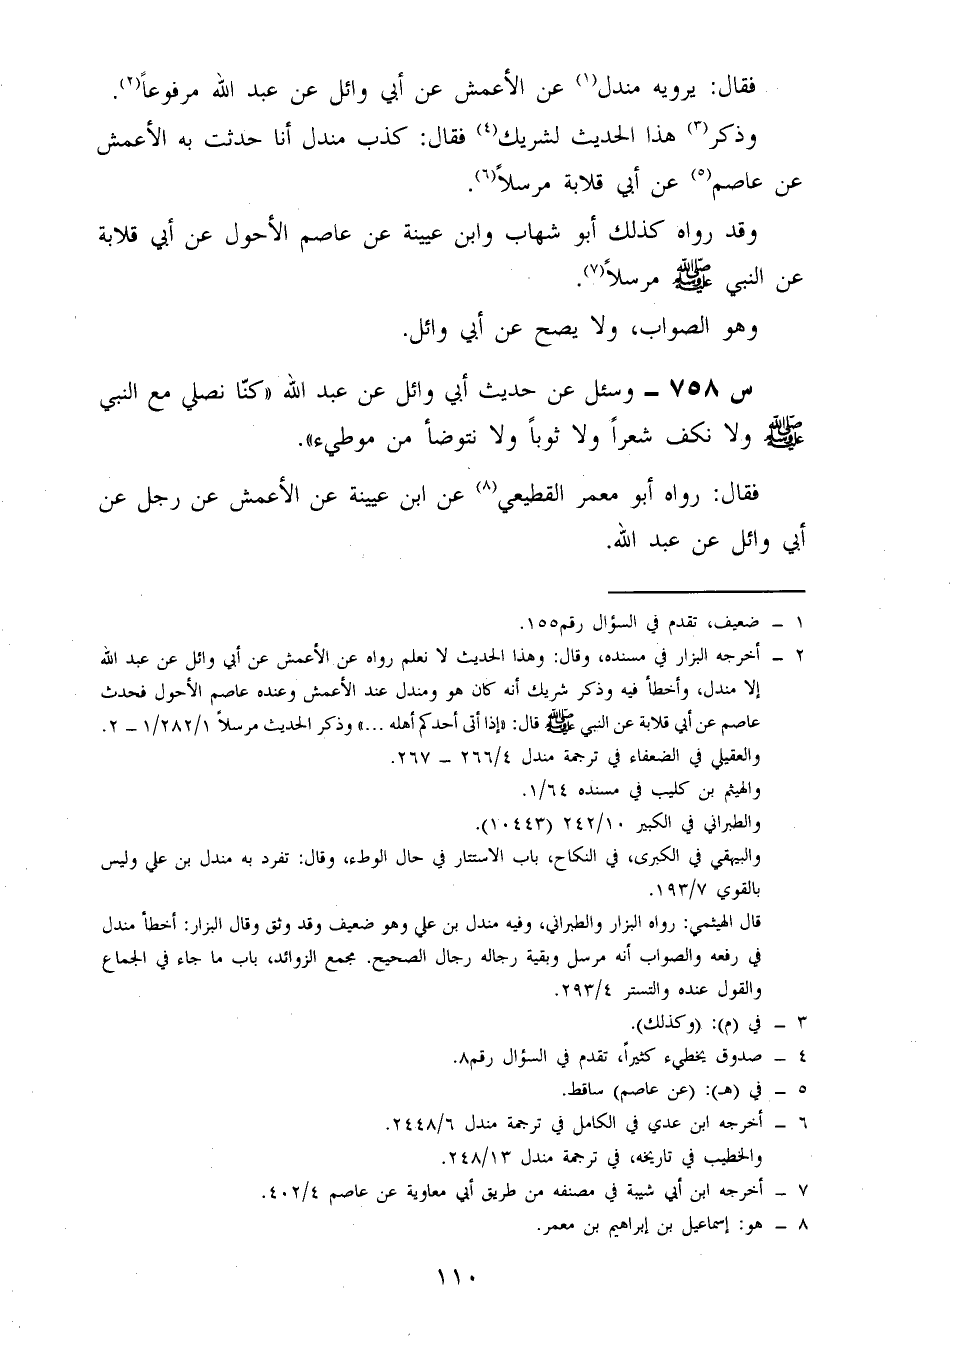 فقال: يرويه مندل(١) عن الأعمش عن أبي وائل عن عبد الله مرفوعاً(٢).
وذكر(٣) هذا الحديث لشريك(٤) فقال: كذب مندل أنا حدثت به الأعمش
عن عاصم(٥) عن أبي قلابة مرسلاً(٦).
وقد رواه كذلك أبو شهاب وابن عيينة عن عاصم الأحول عن أبي قلابة
عن النبي ﷺ مرسلاً(٧).
وهو الصواب، ولا يصح عن أبي وائل.
س ٧٥٨ ــ وسئل عن حديث أبي وائل عن عبد الله «كنّا نصلي مع النبي
ﷺ ولا نكف شعراً ولا ثوباً ولا نتوضأ من موطيء».
فقال: رواه أبو معمر القطيعي(٨) عن ابن عيينة عن الأعمش عن رجل عن
أبي وائل عن عبد الله.
١ ــ ضعيف، تقدم في السؤال رقم١٥٥.
٢ ــ أخرجه البزار في مسنده، وقال: وهذا الحديث لا نعلم رواه عن الأعمش عن أبي وائل عن عبد الله
إلا مندل، وأخطأ فيه وذكر شريك أنه كان هو ومندل عند الأعمش وعنده عاصم الأحول فحدث
عاصم عن أبي قلابة عن النبي ﷺ قال: «إذا أتى أحدكم أهله ...» وذكر الحديث مرسلاً ١/٢٨٢/١ ــ ٢.
والعقيلي في الضعفاء في ترجمة مندل ٢٦٦/٤ ــ ٢٦٧.
والهيثم بن كليب في مسنده ١/٦٤.
والطبراني في الكبير ٢٤٢/١٠ (١٠٤٤٣).
والبيهقي في الكبرى، في النكاح، باب الاستتار في حال الوطء، وقال: تفرد به مندل بن علي وليس
بالقوي ١٩٣/٧.
قال الهيثمي: رواه البزار والطبراني، وفيه مندل بن علي وهو ضعيف وقد وثق وقال البزار: أخطأ مندل
في رفعه والصواب أنه مرسل وبقية رجاله رجال الصحيح. مجمع الزوائد، باب ما جاء في الجماع
والقول عنده والتستر ٢٩٣/٤.
٣ ــ في (م): (وكذلك).
٤ ــ صدوق يخطيء كثيراً، تقدم في السؤال رقم٨.
٥ ــ في (هـ): (عن عاصم) ساقط.
٦ ــ أخرجه ابن عدي في الكامل في ترجمة مندل ٢٤٤٨/٦.
والخطيب في تاريخه، في ترجمة مندل ٢٤٨/١٣.
٧ ــ أخرجه ابن أبي شيبة في مصنفه من طريق أبي معاوية عن عاصم ٤٠٢/٤.
٨ ــ هو: إسماعيل بن إبراهيم بن معمر.
١١٠